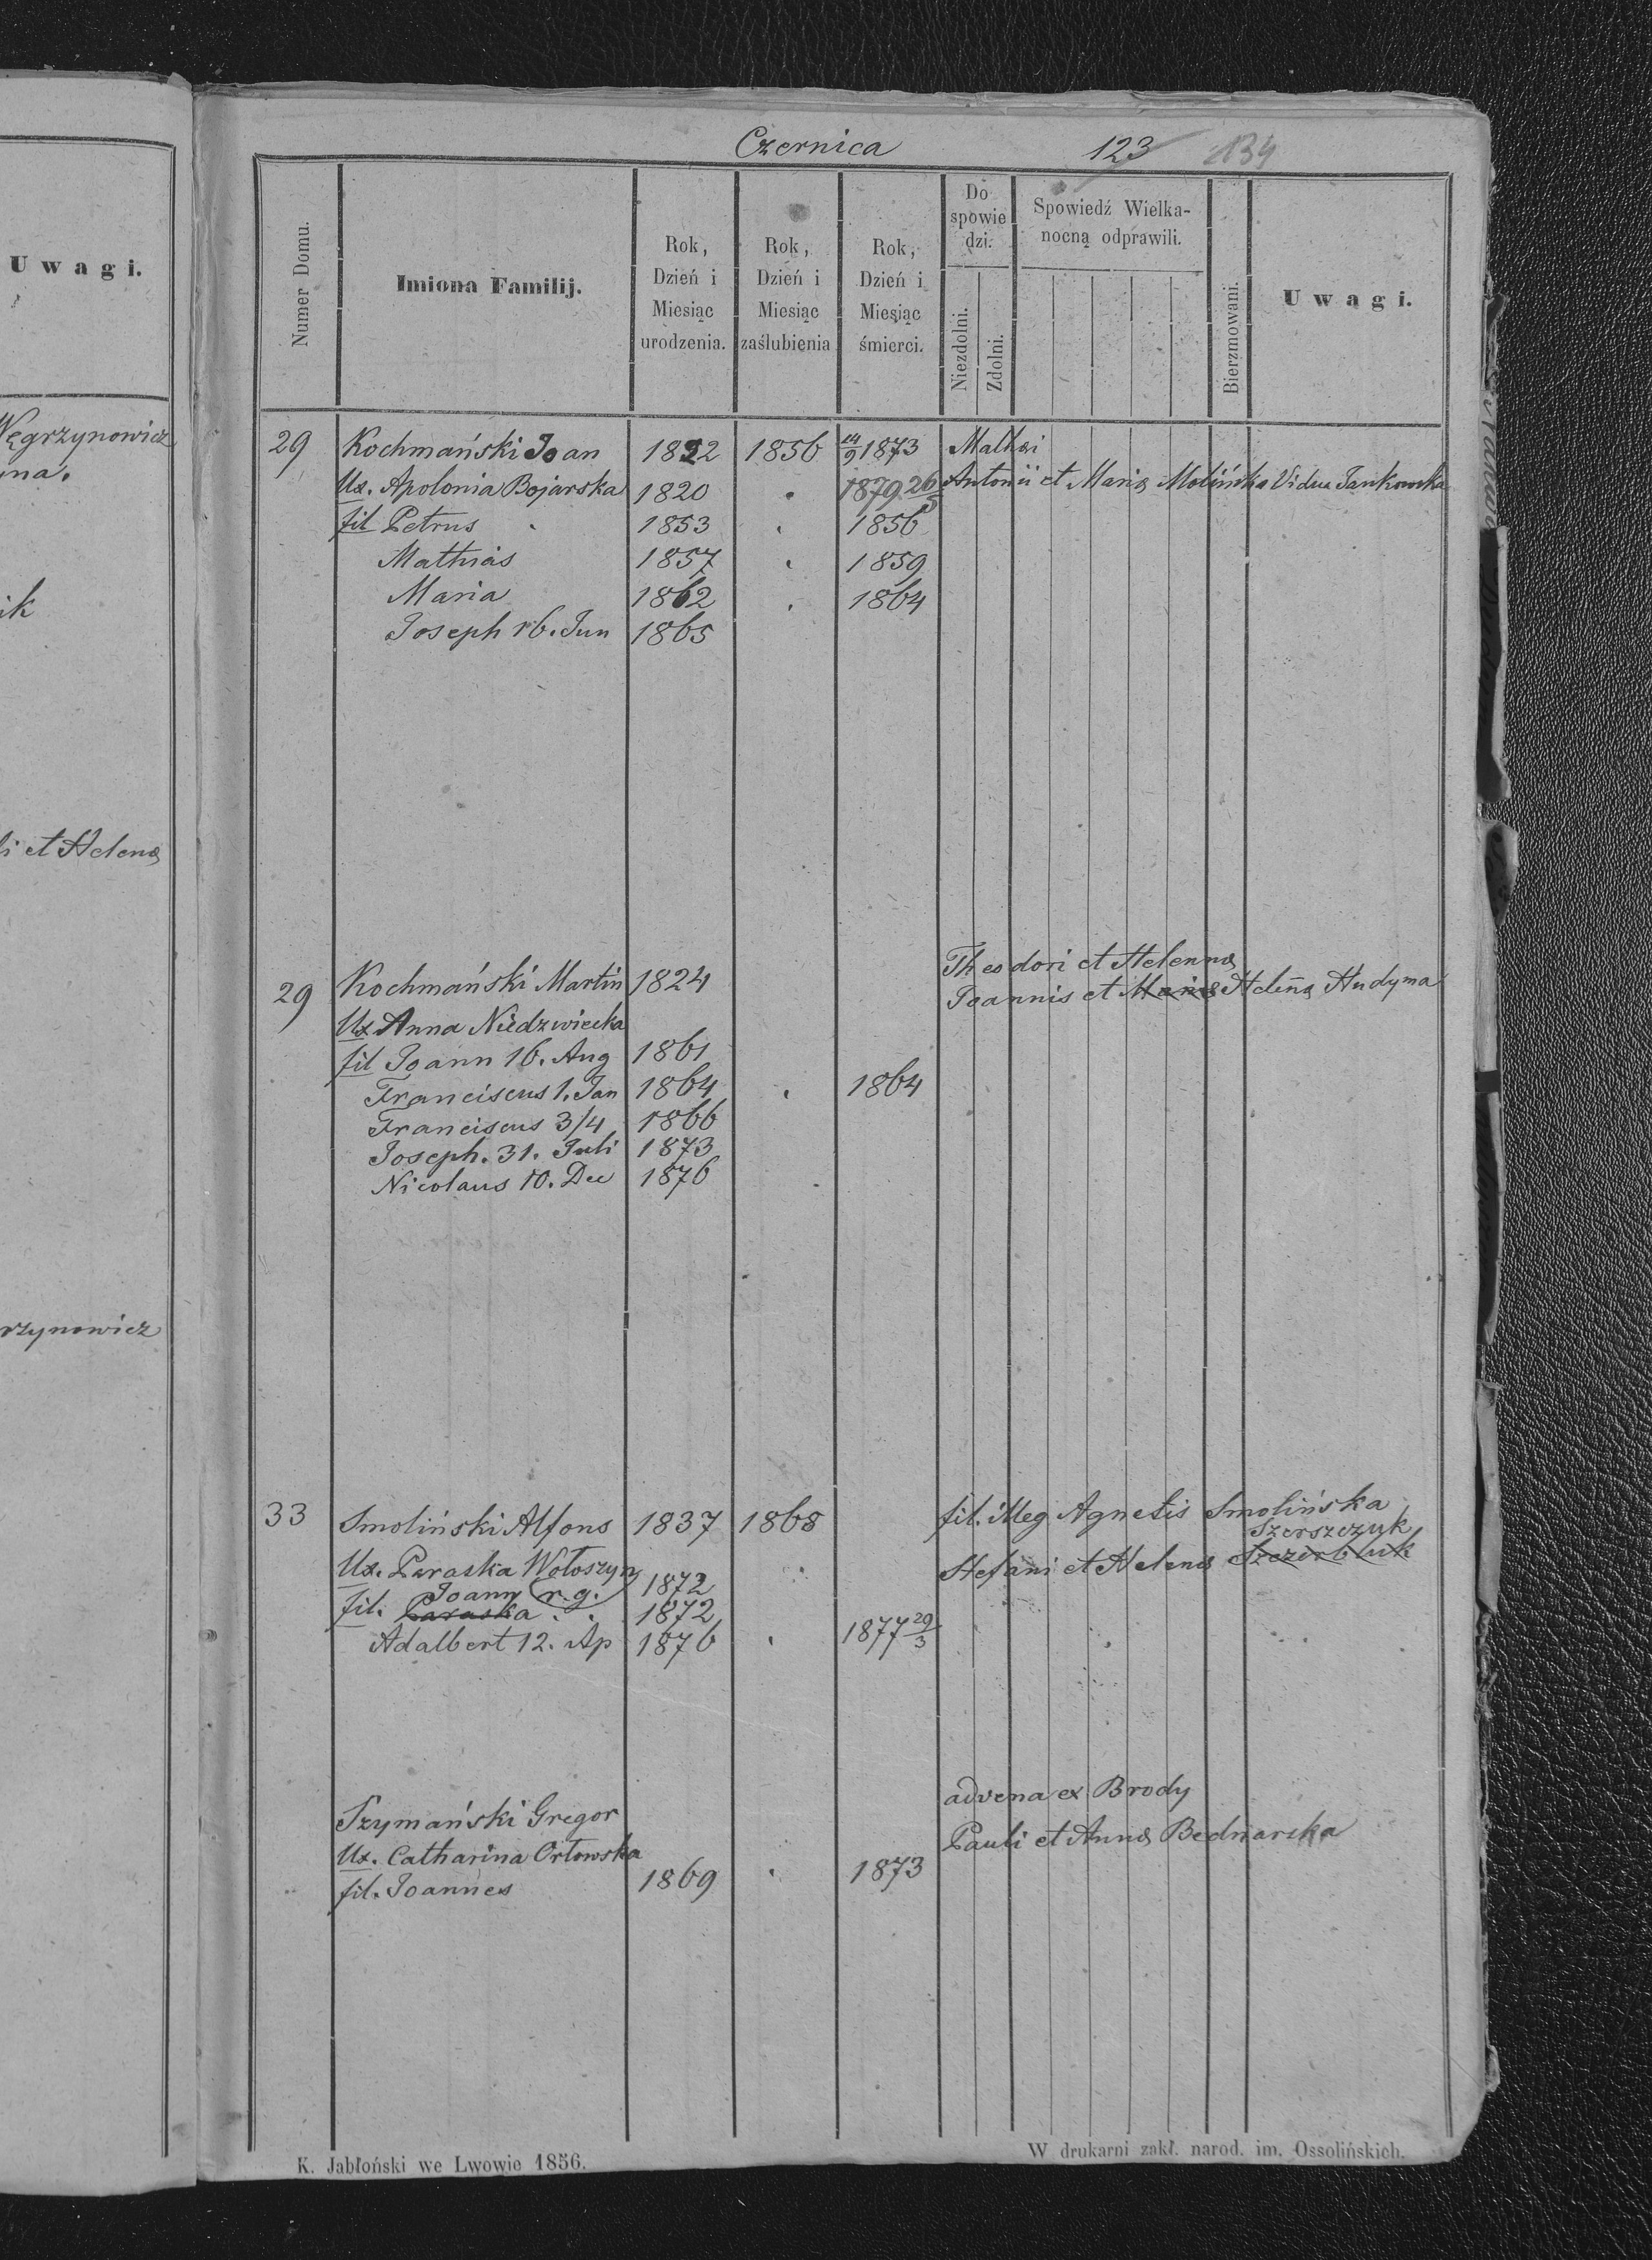 Czernica 123 134
Uwagi.
Numer Domu.
Imiona Familij.
Rok, Dzień i Miesiąc urodzenia.
Rok, Dzień i Miesiąc zaślubienia
Rok, Dzień i Miesiąc śmierci.
Do spowie dzi.
Niezdolni.
Zdolni.
Spowiedź Wielka-
nocną odprawili.
Bierzmowani.
Uwagi.
Węgrzynowicz
ma.
ik
li et Helenæ
rzynowicz
29 Kochmański Joan 1822 1856 14/9 1873 Mathæi
Ux. Apolonia Bojarska 1820 1879 26/5 Antonii et Mariæ Molińska Vidua Jankowska
fil Petrus 1853 1856
Mathias 1857 1859
Maria 1862 1864
Joseph 16. Jun 1865
29 Kochmański Martin 1824 Theodori et Helennæ
Ux Anna Niedzwiecka Joannis et Mariæ Helenæ Hudyma
fil Joann 16. Aug 1861
Franciscus 1. Jan 1864 1864
Franciscus 3/4 1866
Joseph. 31. Juli 1873
Nicolaus 10. Dec 1876
33 Smoliński Alfons 1837 1868 fil. illeg Agnetis Smolińska
Szerszczuk
Ux. Paraska Wołoszyn Stefani et Helenæ
Joann r. g. 1872
fil. Paraska 1872
Adalbert 12. Ap 1876 1877 29/3
Szymański Gregor advena ex Brody
Ux. Catharina Orłowska Pauli et Annæ Bednarska
fil. Joannes 1869 1873
K. Jabłoński we Lwowie 1856.
W drukarni zakł. narod. im. Ossolińskich.